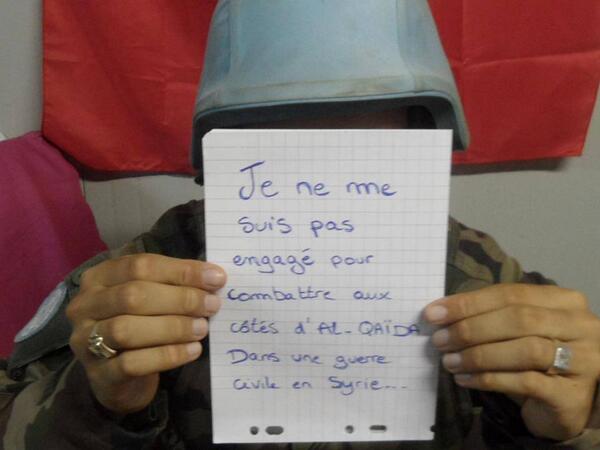 Je ne me
suis pas
engagé pour
combattre aux
côtés d'AL-QAÏDA
Dans une guerre
civile en Syrie...